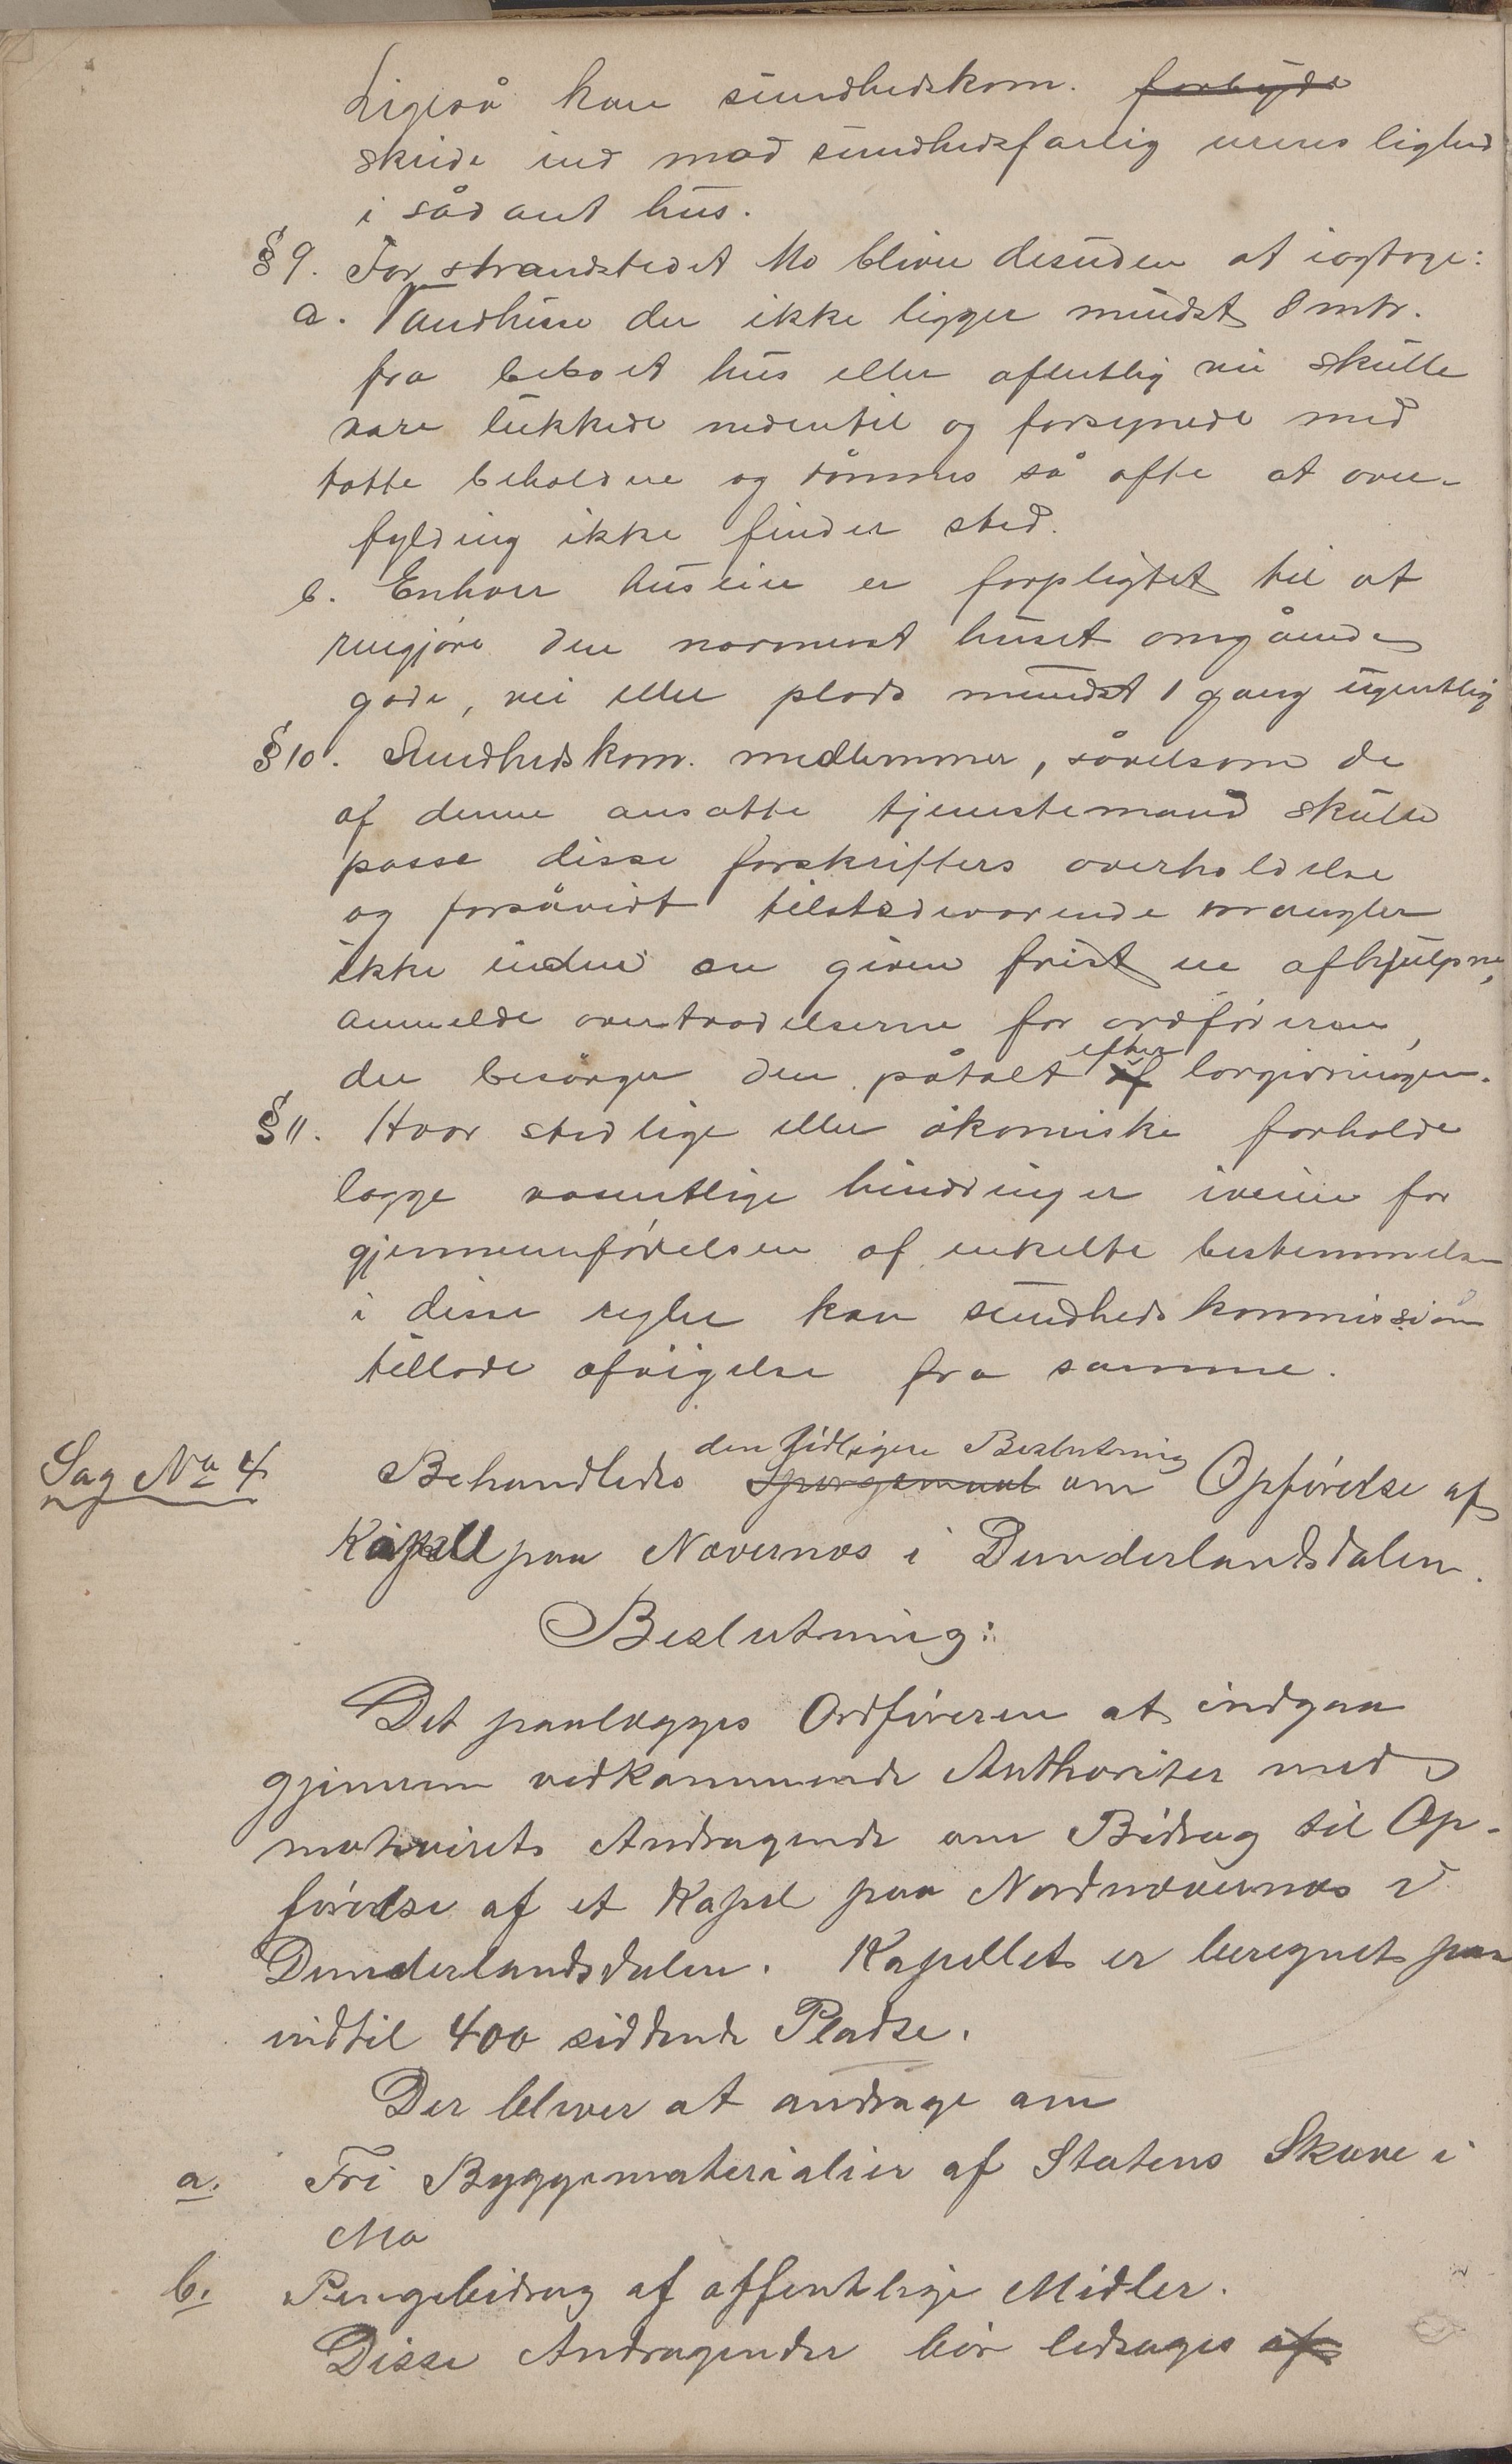 Ligeså kan sundhedskom. forbyde
skride ind mod sundhedsfarlig urenslighed
i sådant hus.
§ 9. For strandstedet Mo bliver desuden at iagtage:
a. Vandhuse der ikke ligger mindst 8 mtr.
fra beboet hus eller offentlig vei skulle
være lukkede nedentil og forsynede med
tætte beholdere og tømmes så ofte at over-
fylding ikke finder sted.
b. Enhver huseier er forpligtet til at
rengjøre den nærmest huset omgående
gade, vei eller plads mindst 1 gang ugentlig
§ 10. Sundhedskom. medlemmer, såvelsom de
af denne ansatte tjenestemænd skulle
passe disse forskrifters overholdelse
og forsåvidt tilstedeværende mangler
ikke inden en given frist er afhjulpne,
anmelde overtrædelserne for ordføreren,
der besørger den påtalt efter af lovgivningen.
§ 11. Hvor stedlige eller økomiske forholde
lægge væsentlige hindringer iveien for
gjennemførelsen af enkelte bestemmelser
i disse regler kan sundhedskommissionen
tillade afvigelse fra samme.
Sag No 4 Behandledes den tidligere Beslutning Spørgsmaal om Opførelse af
Kapell paa Nævernæs i Dunderlandsdalen.
Beslutning:
Det paalægges Ordføreren at indgaa
gjennem vedkommende Authoriter med
motiveret Andragende om Bidrag til Op-
førelse af et Kapel paa Nordnævernæs i
Dunderlandsdalen. Kapellet er beregnet paa
indtil 400 siddende Pladse.
Der bliver at andrage om
a. Fri Byggematerialier af Statens Skove i
Mo
b. Pengebidrag af offentlige Midler.
Disse Andragender bør ledsages af